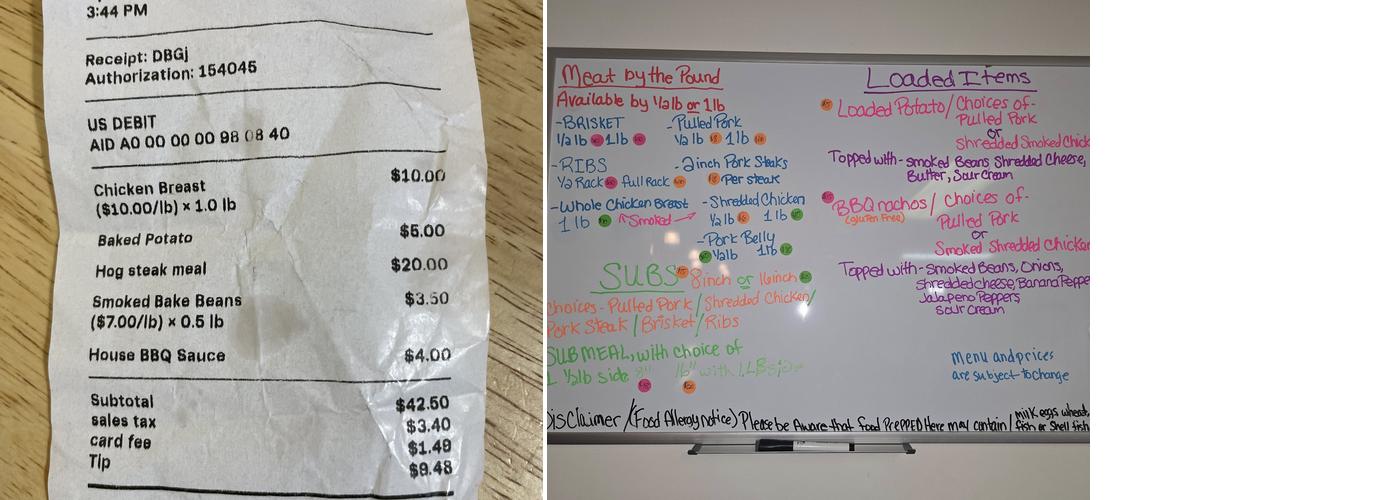 3:44 PM
Receipt: DBGj
Authorization: 154045
US DEBIT
AID A0 00 00 00 98 08 40
Chicken Breast $10.00
($10.00/lb) × 1.0 lb
Baked Potato $5.00
Hog steak meal $20.00
Smoked Bake Beans $3.50
($7.00/lb) × 0.5 lb
House BBQ Sauce $4.00
Subtotal $42.50
sales tax $3.40
card fee $1.49
Tip $9.48
Meat by the Pound
Available by 1/2lb or 1lb
-BRISKET
1/2 lb 1 lb
-Pulled Pork
1/2 lb 1 lb
-RIBS
1/2 Rack full Rack
-2inch Pork Steaks
Per steak
-Whole Chicken Breast
1 lb Smoked
-Shredded Chicken
1/2 lb 1 lb
-Pork Belly
1/2lb 1lb
SUBS 8inch or 16inch
Choices-Pulled Pork/Shredded Chicken/
Pork Steak/Brisket/Ribs
SUB MEAL, with choice of
1 1/2lb side 8" 16" with 1 LB side
Loaded Items
Loaded Potato/Choices of-
Pulled Pork
or
shredded Smoked Chick
Topped with-smoked Beans Shredded Cheese,
Butter, Sour Cream
BBQ nachos/Choices of-
(gluten Free)
Pulled Pork
or
Smoked Shredded Chicken
Topped with-Smoked Beans, Onions,
shredded cheese, Banana Peppe
Jalapeno Peppers
sour cream
Menu and prices
are subject to change
Disclaimer/(Food Allergy notice) Please be Aware that food Prepped Here may contain/milk eggs wheat,
fish or Shell fish